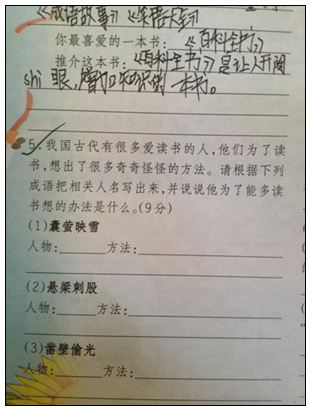 《成语故事》《
你最喜爱的一本书:《百科全书》
推介这本书:《百科全书》是让人开阔
shi 眼,增加知识的一本书。
5.我国古代有很多爱读书的人,他们为了读
书,想出了很多奇奇怪怪的方法。请根据下列
成语把相关人名写出来,并说说他为了能多读
书想的办法是什么。(9分)
(1)囊萤映雪
人物: 方法:
(2)悬梁刺股
人物: 方法:
(3)凿壁偷光
人物: 方法: